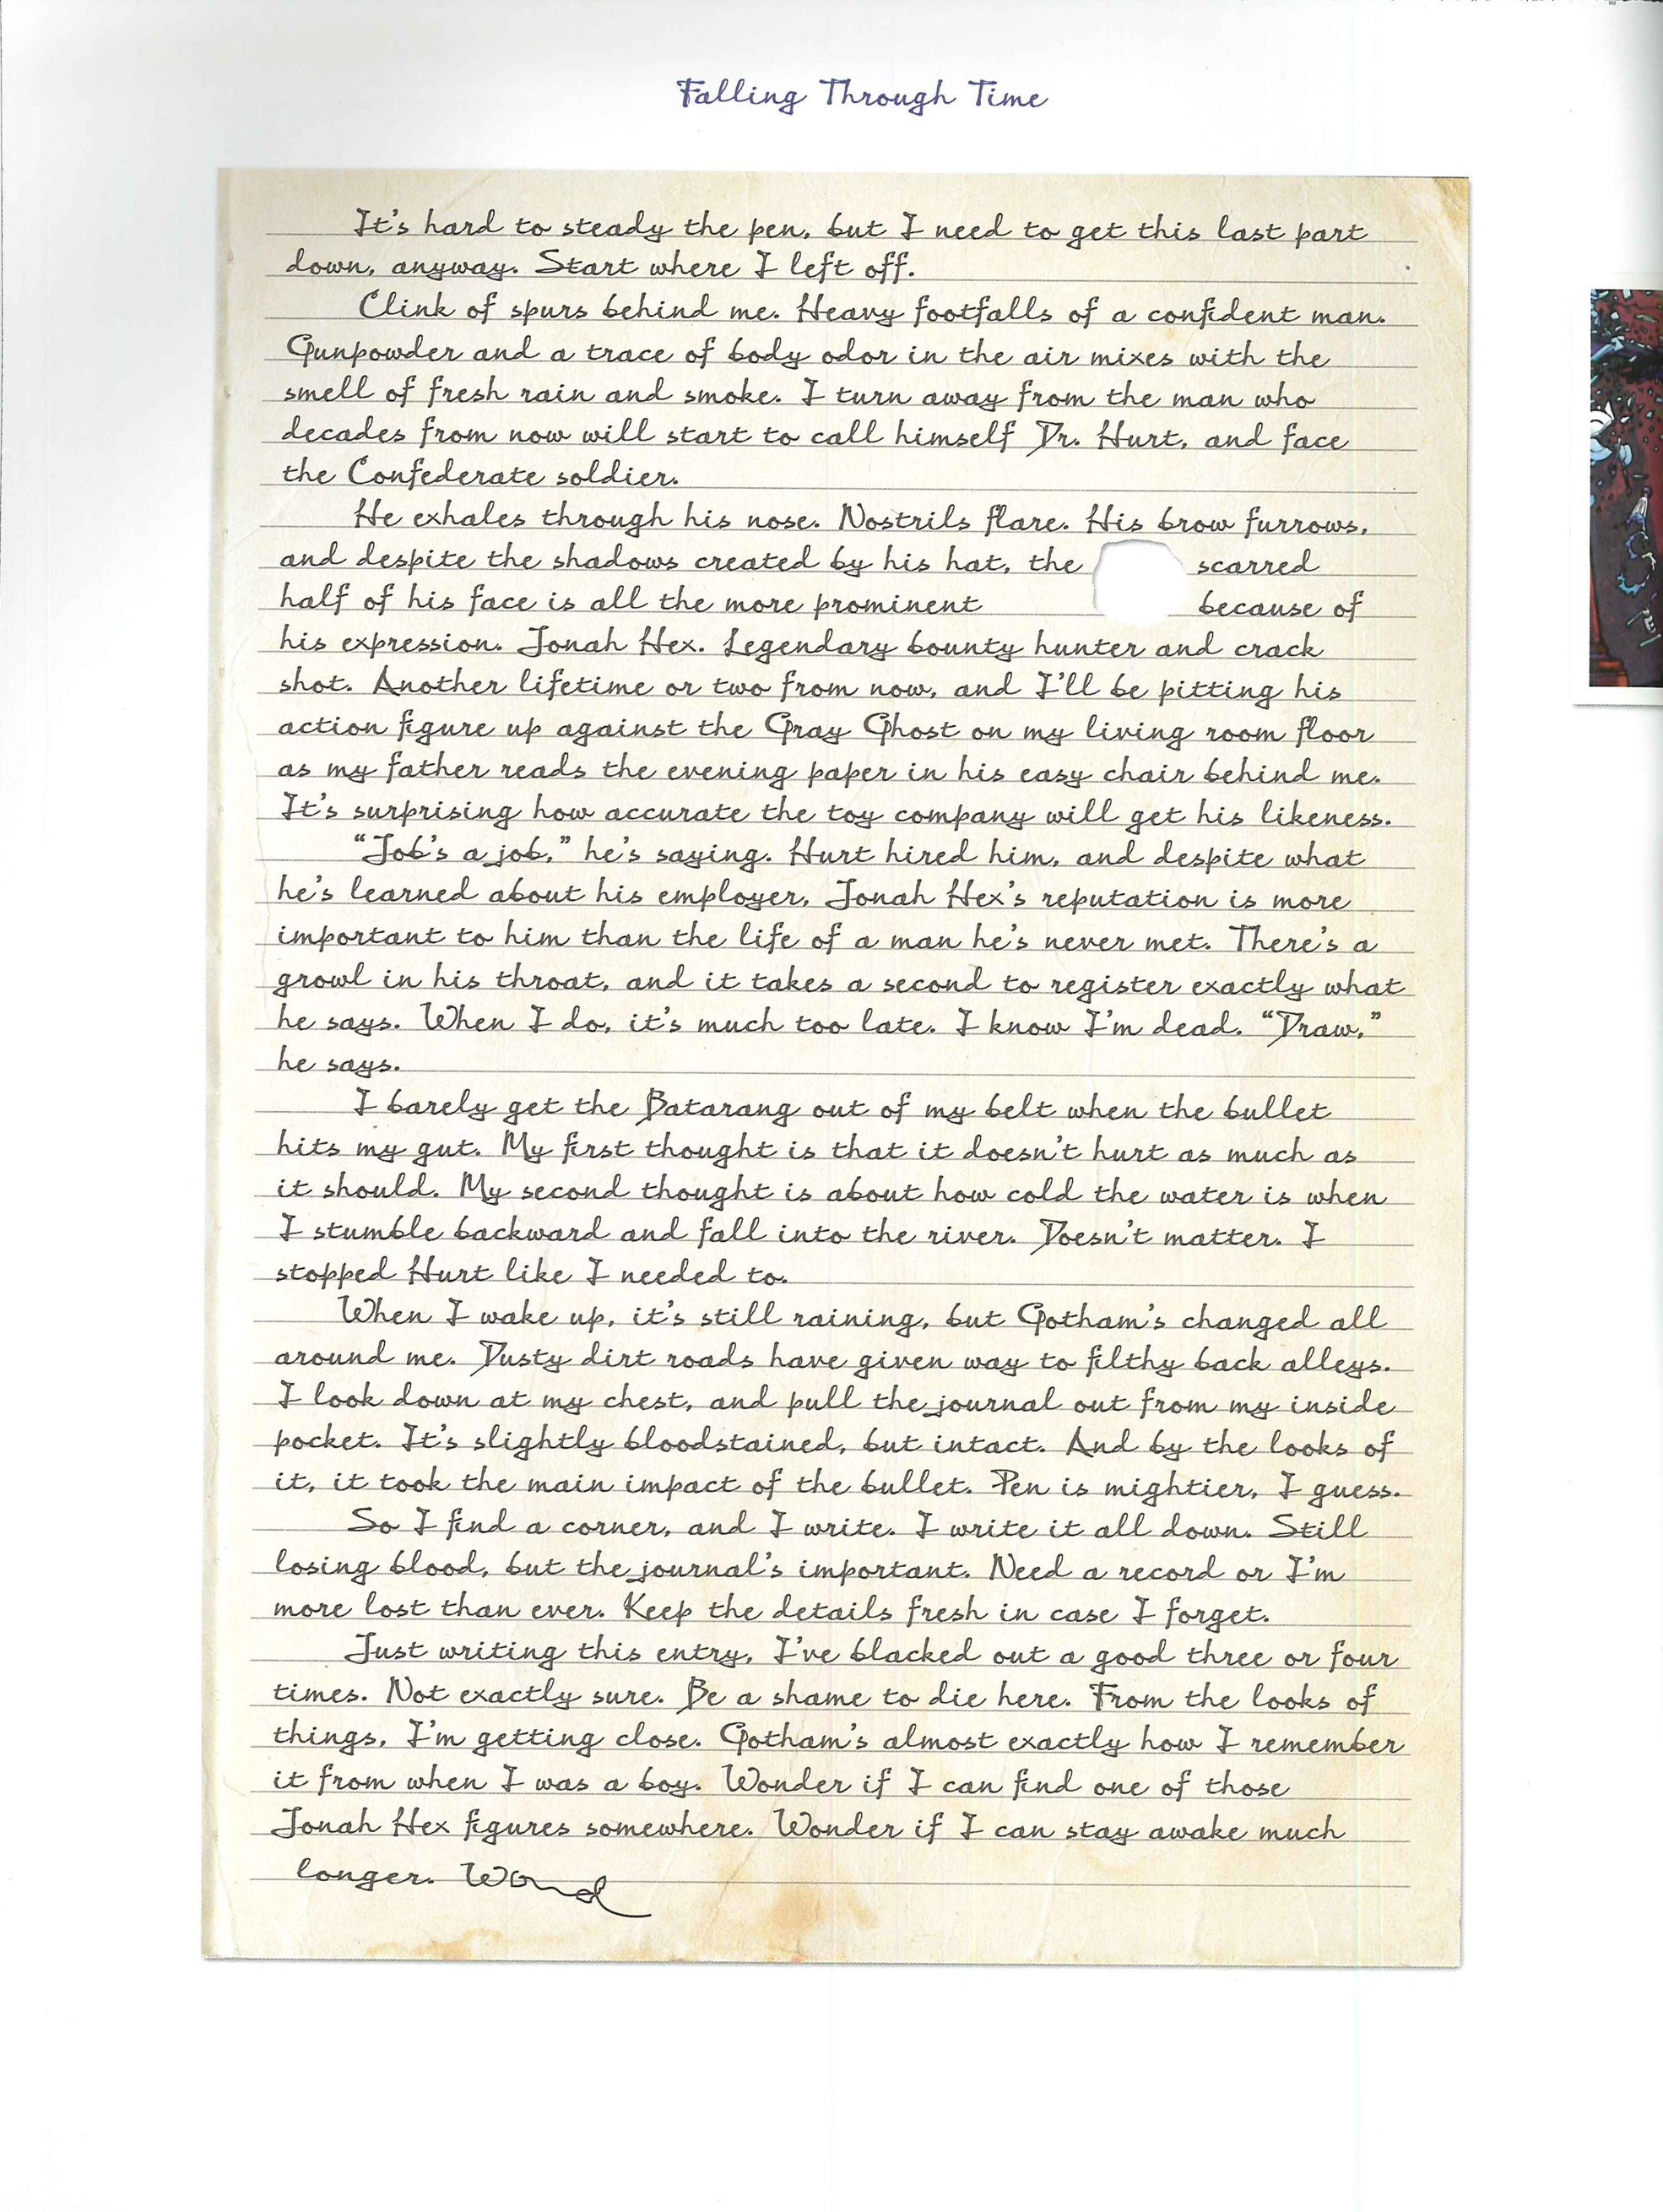 Falling Through Time
It's hard to steady the pen, but I need to get this last part
down, anyway. Start where I left off.
Clink of spurs behind me. Heavy footfalls of a confident man.
Gunpowder and a trace of body odor in the air mixes with the
smell of fresh rain and smoke. I turn away from the man who
decades from now will start to call himself Dr. Hurt, and face
the Confederate soldier.
He exhales through his nose. Nostrils flare. His brow furrows,
and despite the shadows created by his hat, the scarred
half of his face is all the more prominent because of
his expression. Jonah Hex. Legendary bounty hunter and crack
shot. Another lifetime or two from now, and I'll be pitting his
action figure up against the Gray Ghost on my living room floor
as my father reads the evening paper in his easy chair behind me.
It's surprising how accurate the toy company will get his likeness.
"Job's a job," he's saying. Hurt hired him, and despite what
he's learned about his employer, Jonah Hex's reputation is more
important to him than the life of a man he's never met. There's a
growl in his throat, and it takes a second to register exactly what
he says. When I do, it's much too late. I know I'm dead. "Draw,"
he says.
I barely get the Batarang out of my belt when the bullet
hits my gut. My first thought is that it doesn't hurt as much as
it should. My second thought is about how cold the water is when
I stumble backward and fall into the river. Doesn't matter. I
stopped Hurt like I needed to.
When I wake up, it's still raining, but Gotham's changed all
around me. Dusty dirt roads have given way to filthy back alleys.
I look down at my chest, and pull the journal out from my inside
pocket. It's slightly bloodstained, but intact. And by the looks of
it, it took the main impact of the bullet. Pen is mightier, I guess.
So I find a corner, and I write. I write it all down. Still
losing blood, but the journal's important. Need a record or I'm
more lost than ever. Keep the details fresh in case I forget.
Just writing this entry, I've blacked out a good three or four
times. Not exactly sure. Be a shame to die here. From the looks of
things, I'm getting close. Gotham's almost exactly how I remember
it from when I was a boy. Wonder if I can find one of those
Jonah Hex figures somewhere. Wonder if I can stay awake much
longer. Wond